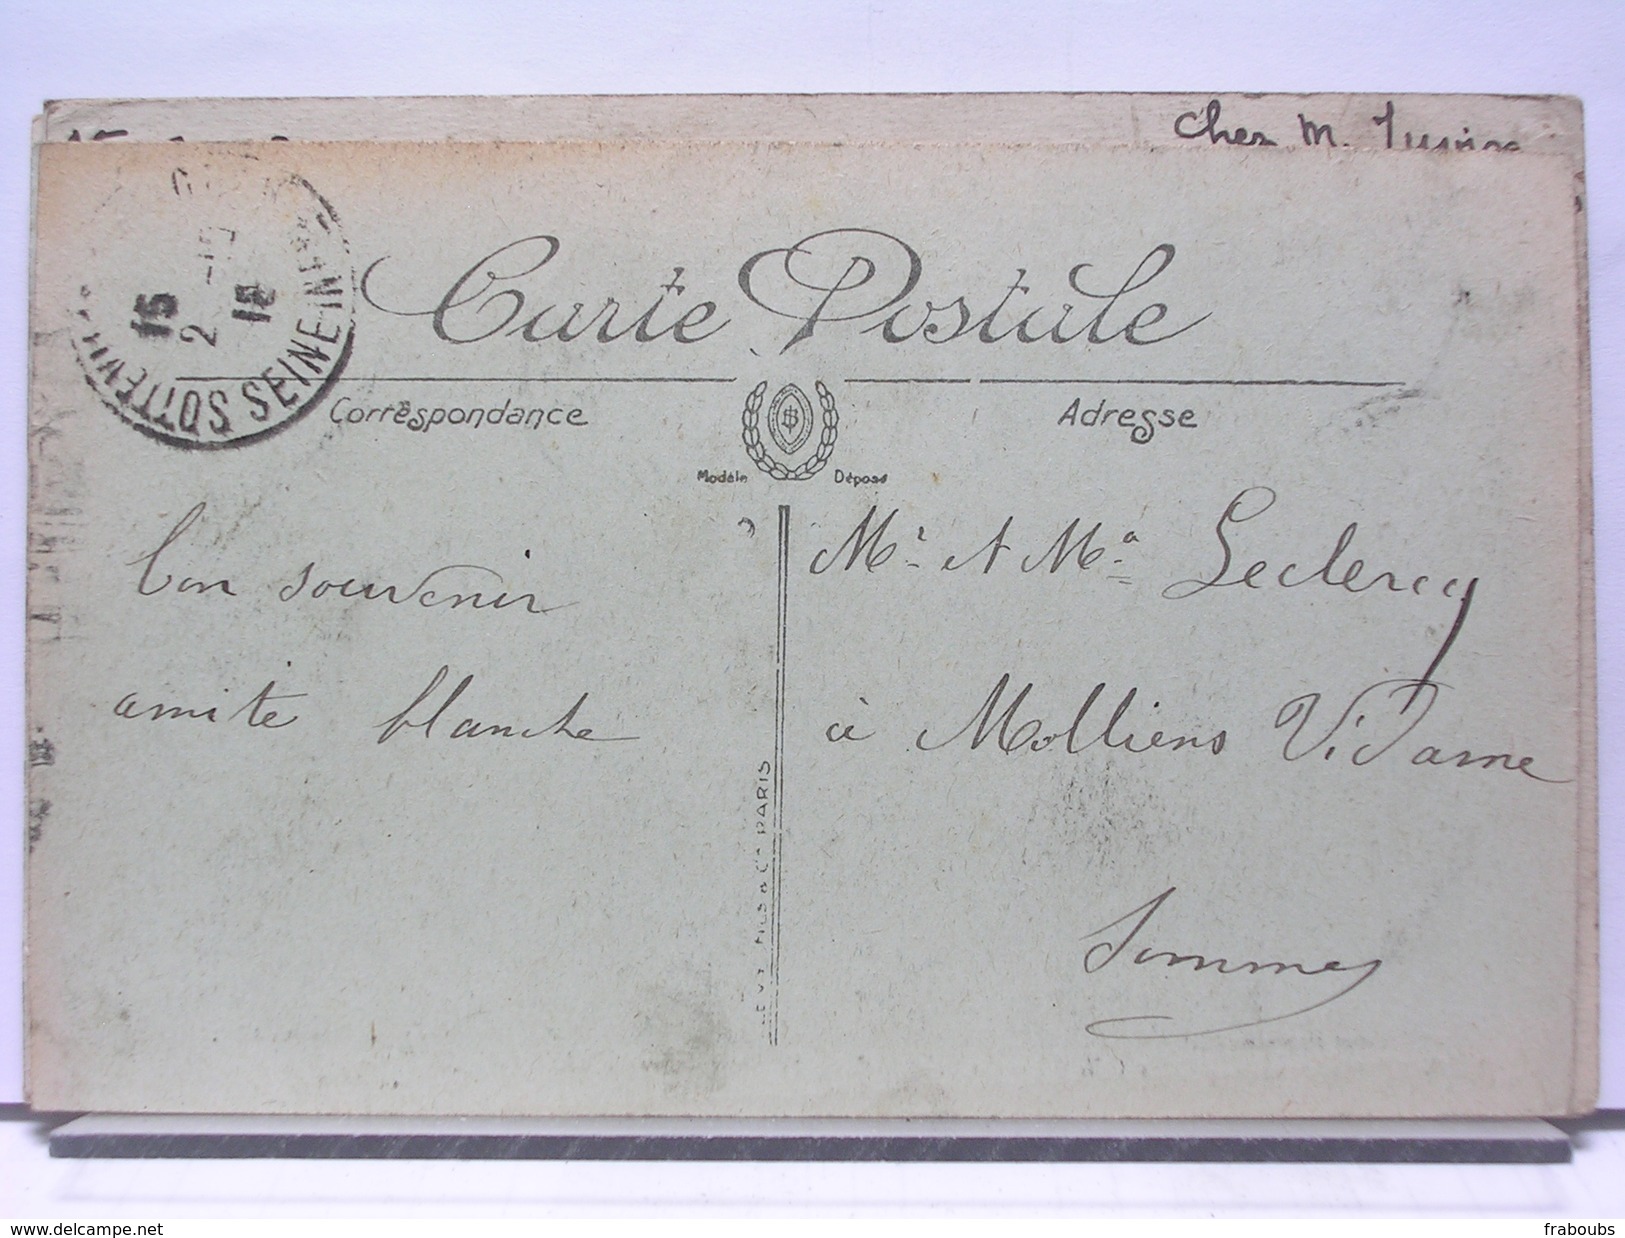 Chez M.
Carte Postale
Correspondance
Adresse
Modèle Déposé
SOTTEVILLE SEINE INF
15
2
12
Bon souvenir
amité blanche
Mr. et Ma Leclercq
à Molliens Vidame
Somme
FILS & Cie PARIS
www.delcampe.net
fraboubs